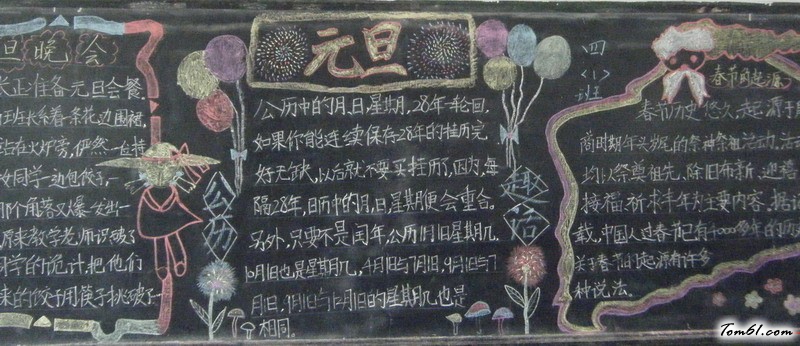 旦晚会
正准备元旦会餐
班长系着一条花边围裙
站在火炉旁,俨然一
女同学一边包饺子,
那个角落又爆发出一
原来数学老师识破了
同学的诡计,把他们
来的饺子用筷子挑破了一
元旦
公历中的月、日、星期,28年一轮回,
如果你能连续保存28年的挂历完
好无缺,以后就不要买挂历了,因为,每
隔28年,日历中的月、日、星期便会重合。
另外,只要不是闰年,公历1月1日星期几,
10月1日也是星期几,4月1日与7月1日,9月1日与
月1日的星期几也是
相同。
公历
趣谈
四
(1)
班
春节起源
春节历史悠久,起源于
商时期年头岁尾的祭神祭祖活动。
祭尊祖先、除旧布新、迎禧
接福、祈求丰年为主要内容。据
载,中国人过春节已有4000多年的历
关于春节的起源有许多
种说法
Tom61.com